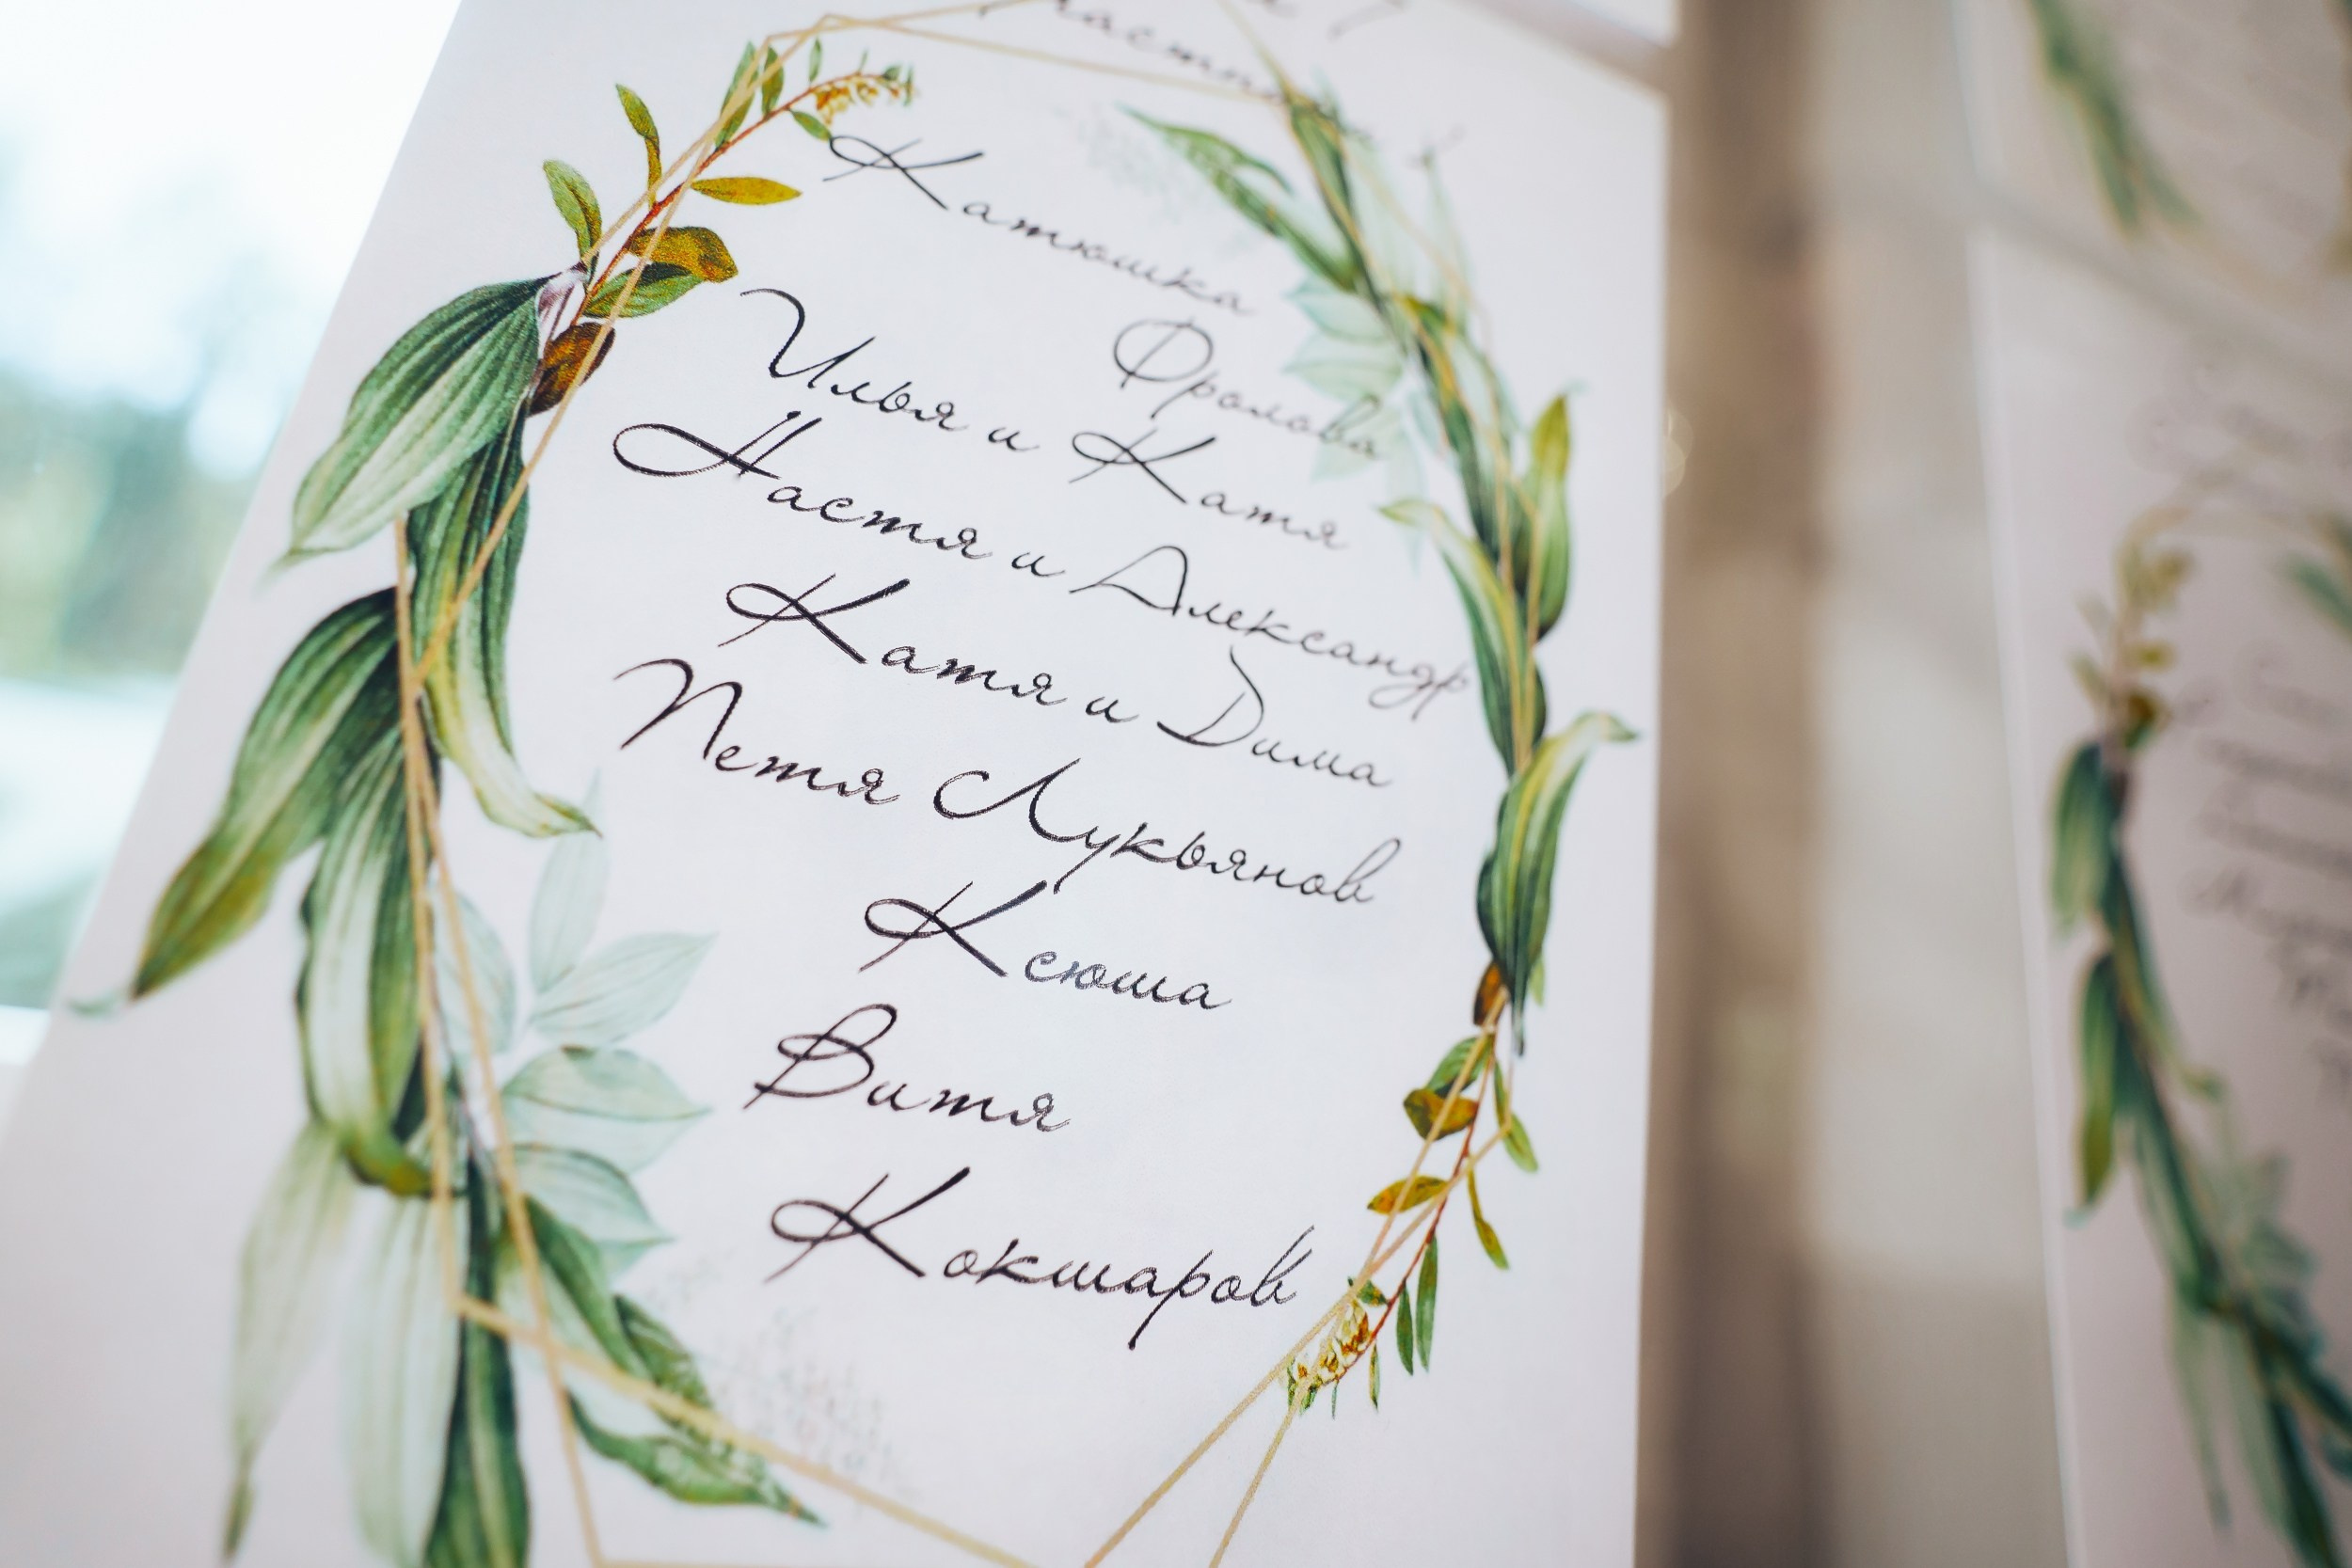 Катюшка
Фролова
Илья и Катя
Настя и Александр
Катя и Дима
Петя Лукьянов
Ксюша
Витя
Кокшаров